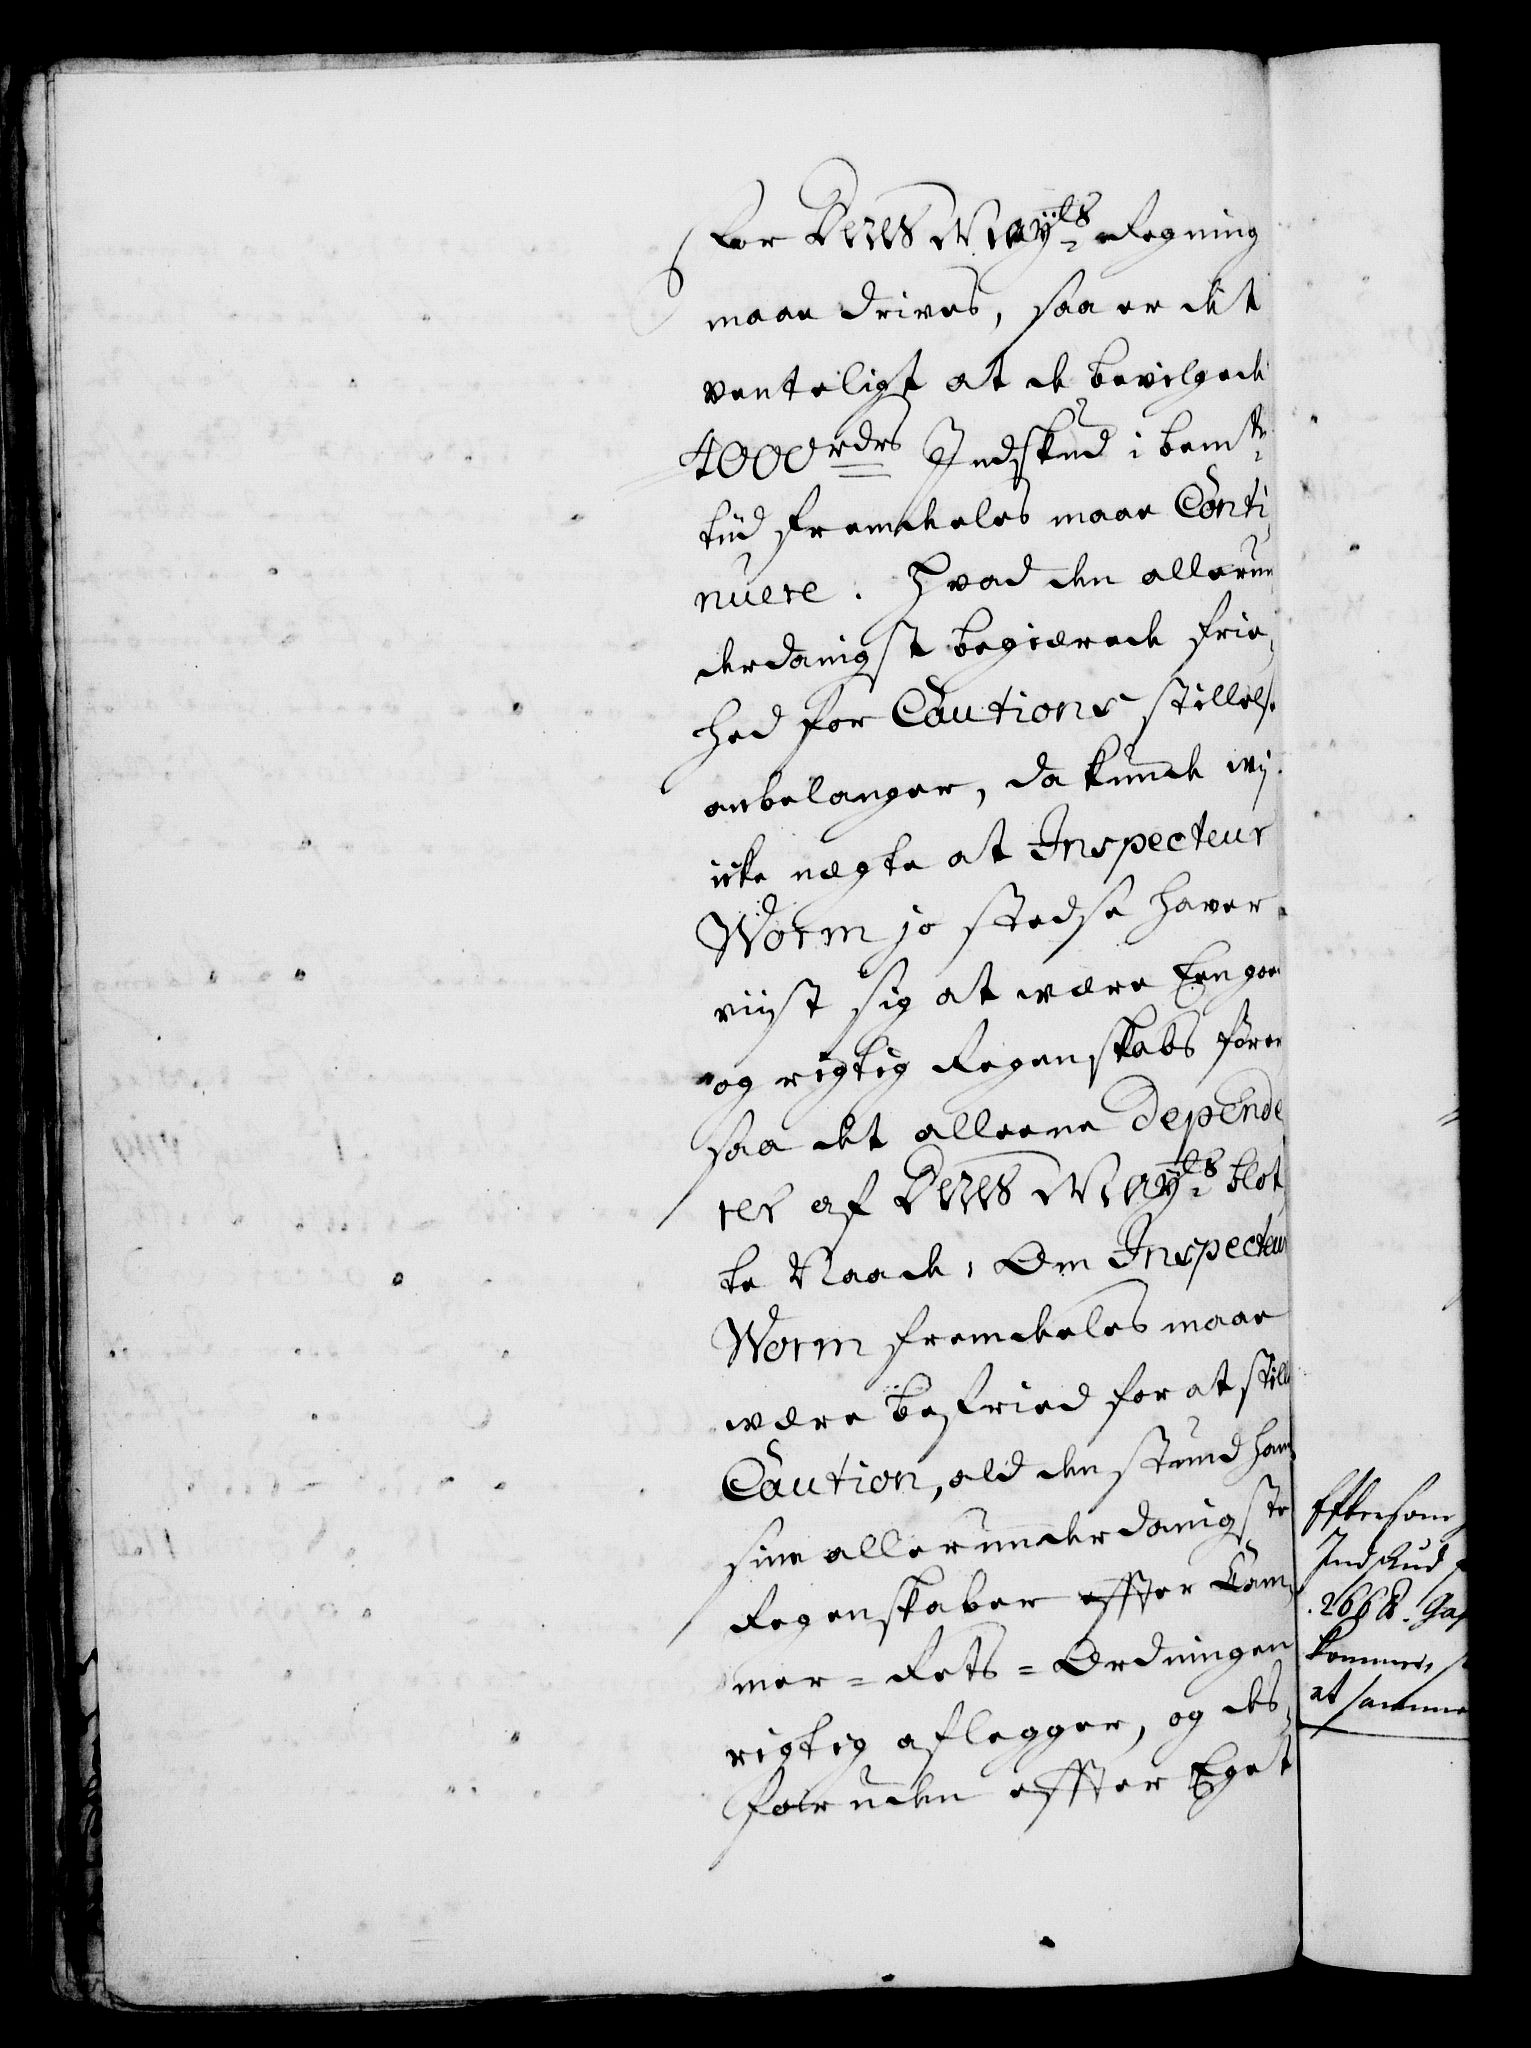 for Deres Mayts Regning
maae drives, saa er det
venteligt at de bevilgede
4000 rdrs Indskud i bemte
tiid fremdeles maae Conti¬
nuere. Hvad den allerun
derdanigst begierede frie¬
hed for Cautions stillelse
anbelanger, da kunde wij
icke negte at Inspecteur
Worm jo stedse haver
viist sig at være Een goed
og rigtig Regenskabs fører
saa det alleene depende
rer af Deres Mayts blot
te Naade, Om Inspecteur
Worm fremdeles maae
være befried for at stille
Caution, ald den stund hand
sine allerunderdanigste
Regenskaber effter Cam¬
mer=Rets=Ordningen
rigtig aflegger, og des¬
foruden effter Eget
Efftersom
Indskud
2668
komme
at samme